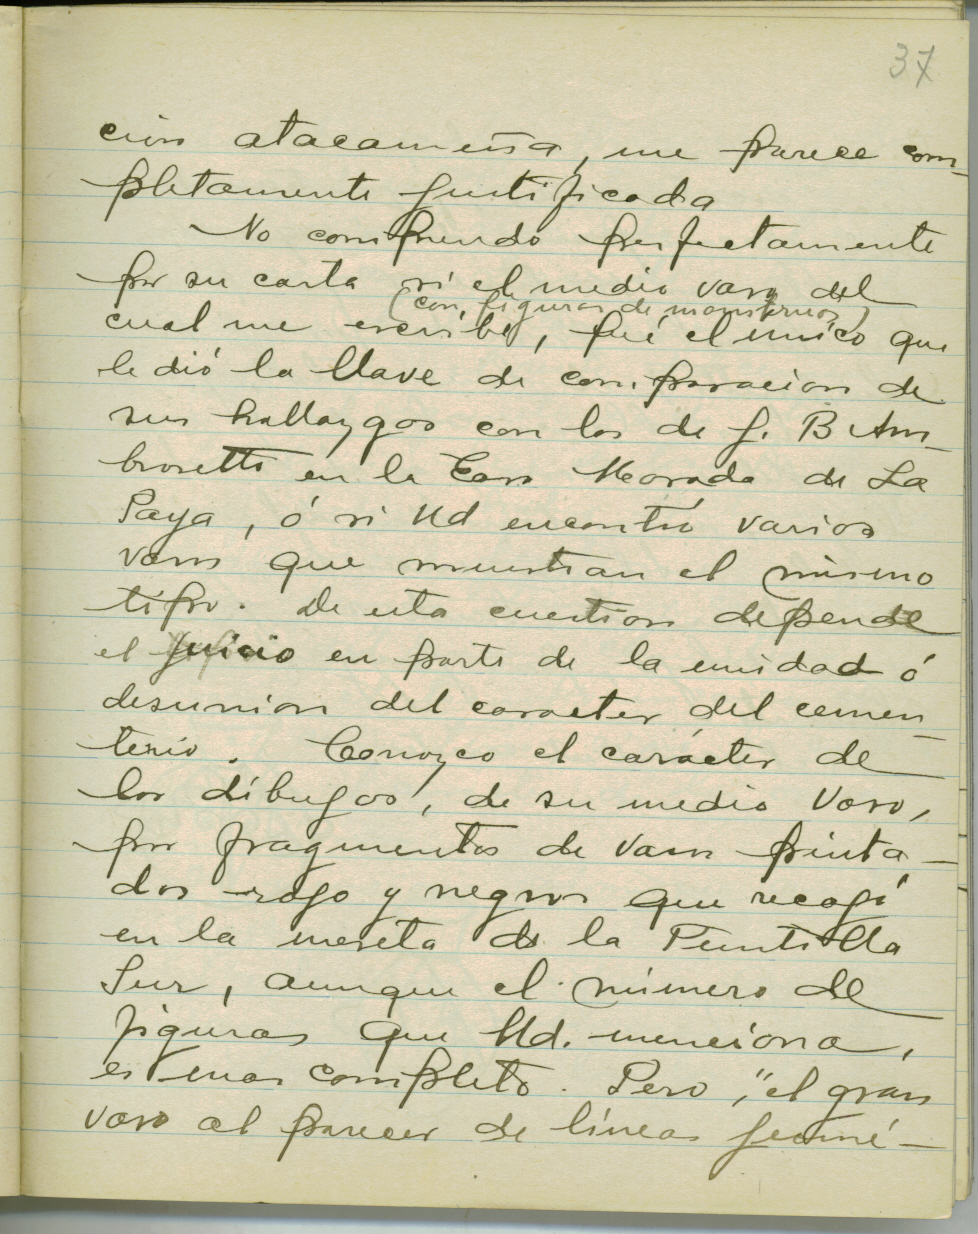 37
cion atacameña, me parece com-
pletamente justificada
No comprendo perfectamente
por su carta si el medio vaso del
(con figuras de monstruos)
cual me escribe, fué el unico que
le dió la llave de comparacion de
sus hallazgos con los de J. B Am-
brosetti en la Casa Morada de La
Paya, ó si Ud encontró varios
vasos que muestran el mismo
tipo. De esta cuestion depende
el juicio en parte de la unidad ó
desunion del caracter del cemen-
terio. Conozco el carácter de
los dibujos, de su medio vaso,
por fragmentos de vasos pinta-
dos rojo y negros que recogí
en la meseta de la Puntilla
Sur, aunque el número de
figuras que Ud. menciona,
es mas completo. Pero, "el gran
vaso al parecer de líneas geomé-